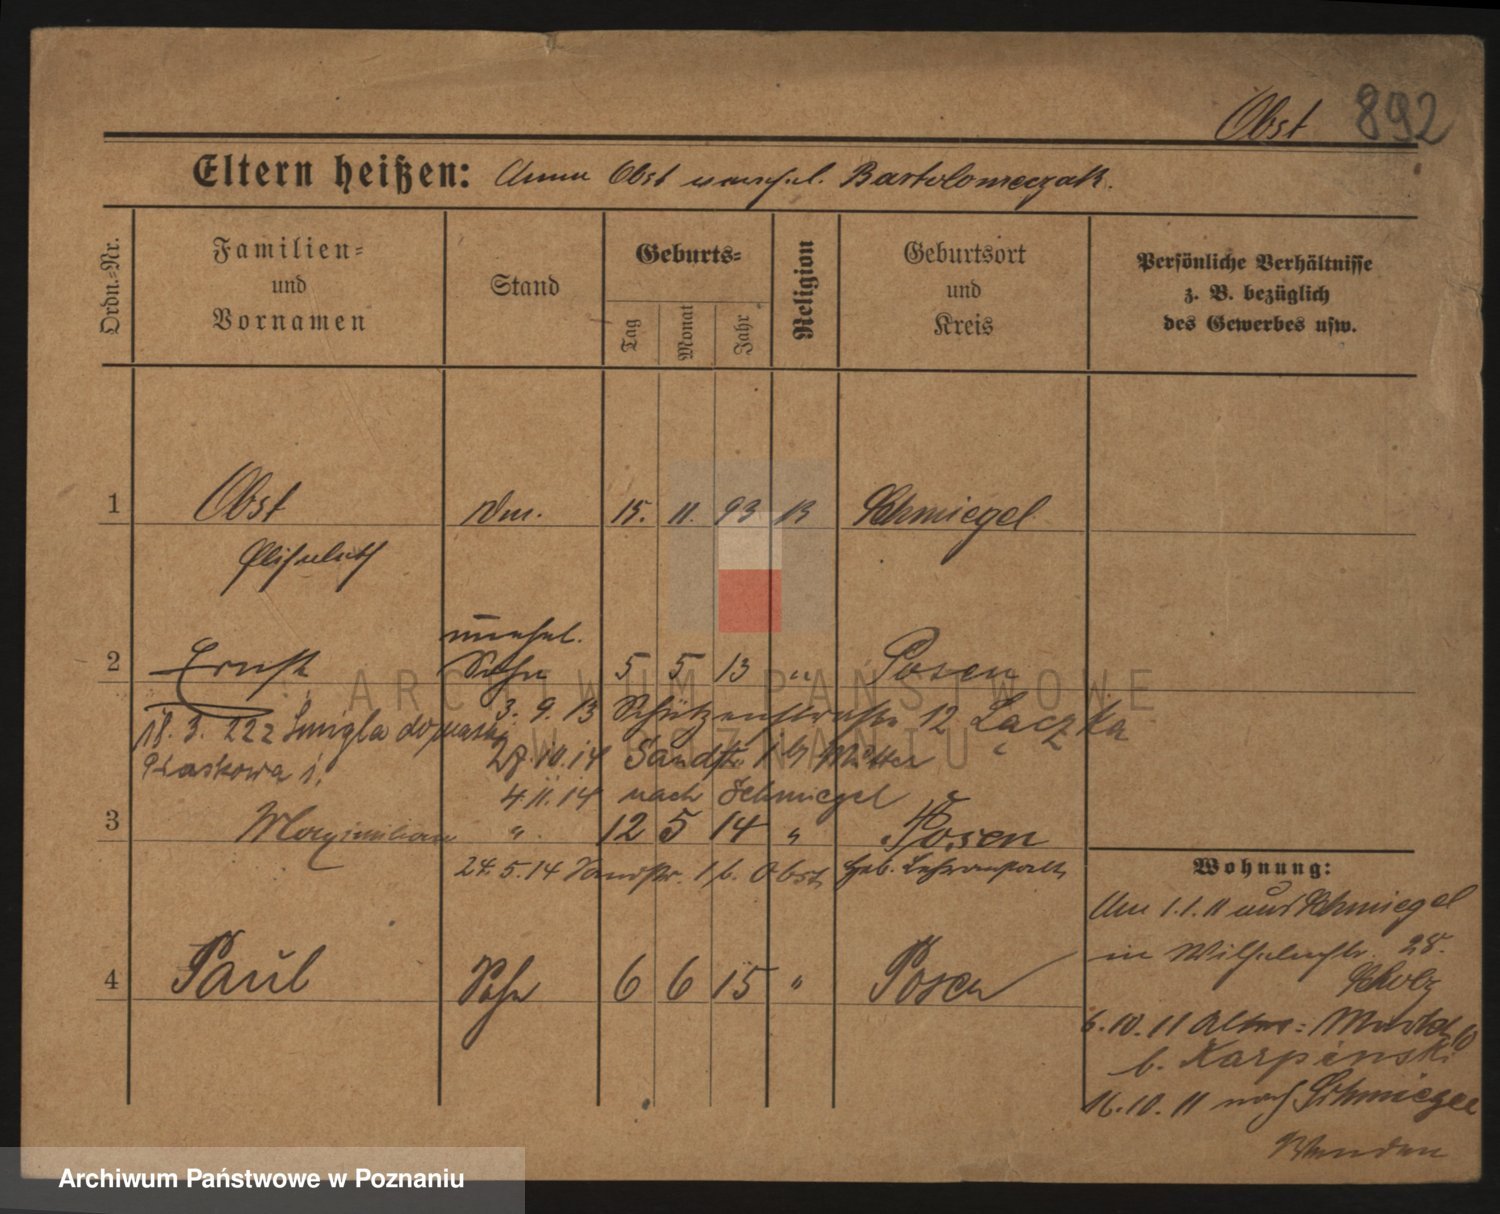 Obst 892
Eltern heißen: Anna Obst verehel. Bartolomeczak.
Ordn.-Nr.
Familien- und Vornamen
Stand
Geburts-
Tag
Monat
Jahr
Religion
Geburtsort und Kreis
Persönliche Verhältnisse z. B. bezüglich des Gewerbes usw.
1 Obst 15. 11. 93 Schmiegel
Elisabeth
unehel.
2 Ernst Sohn 5 5 13 " Posen
3. 9. 13 Schützenstraße 12 Łaczka
18. 3. 22 z Śmigla do
27. 10. 14 Sandstr. 1 b Mutter
4. 11. 14 nach Schmiegel
3 Maximilian " 12 5 14 " Posen
24. 5. 14 Sandstr. 1 b. Obst Heb. Lehranstalt
Wohnung:
Am 1. 1. 11 aus Schmiegel
in Wilhelmstr. 28.
Scholz
4 Paul Sohn 6 6 15 " Posen
6. 10. 11 Alter Markt 10
b. Karpinski
16. 10. 11 nach Schmiegel
ARCHIWUM PAŃSTWOWE
W POZNANIU
Archiwum Państwowe w Poznaniu